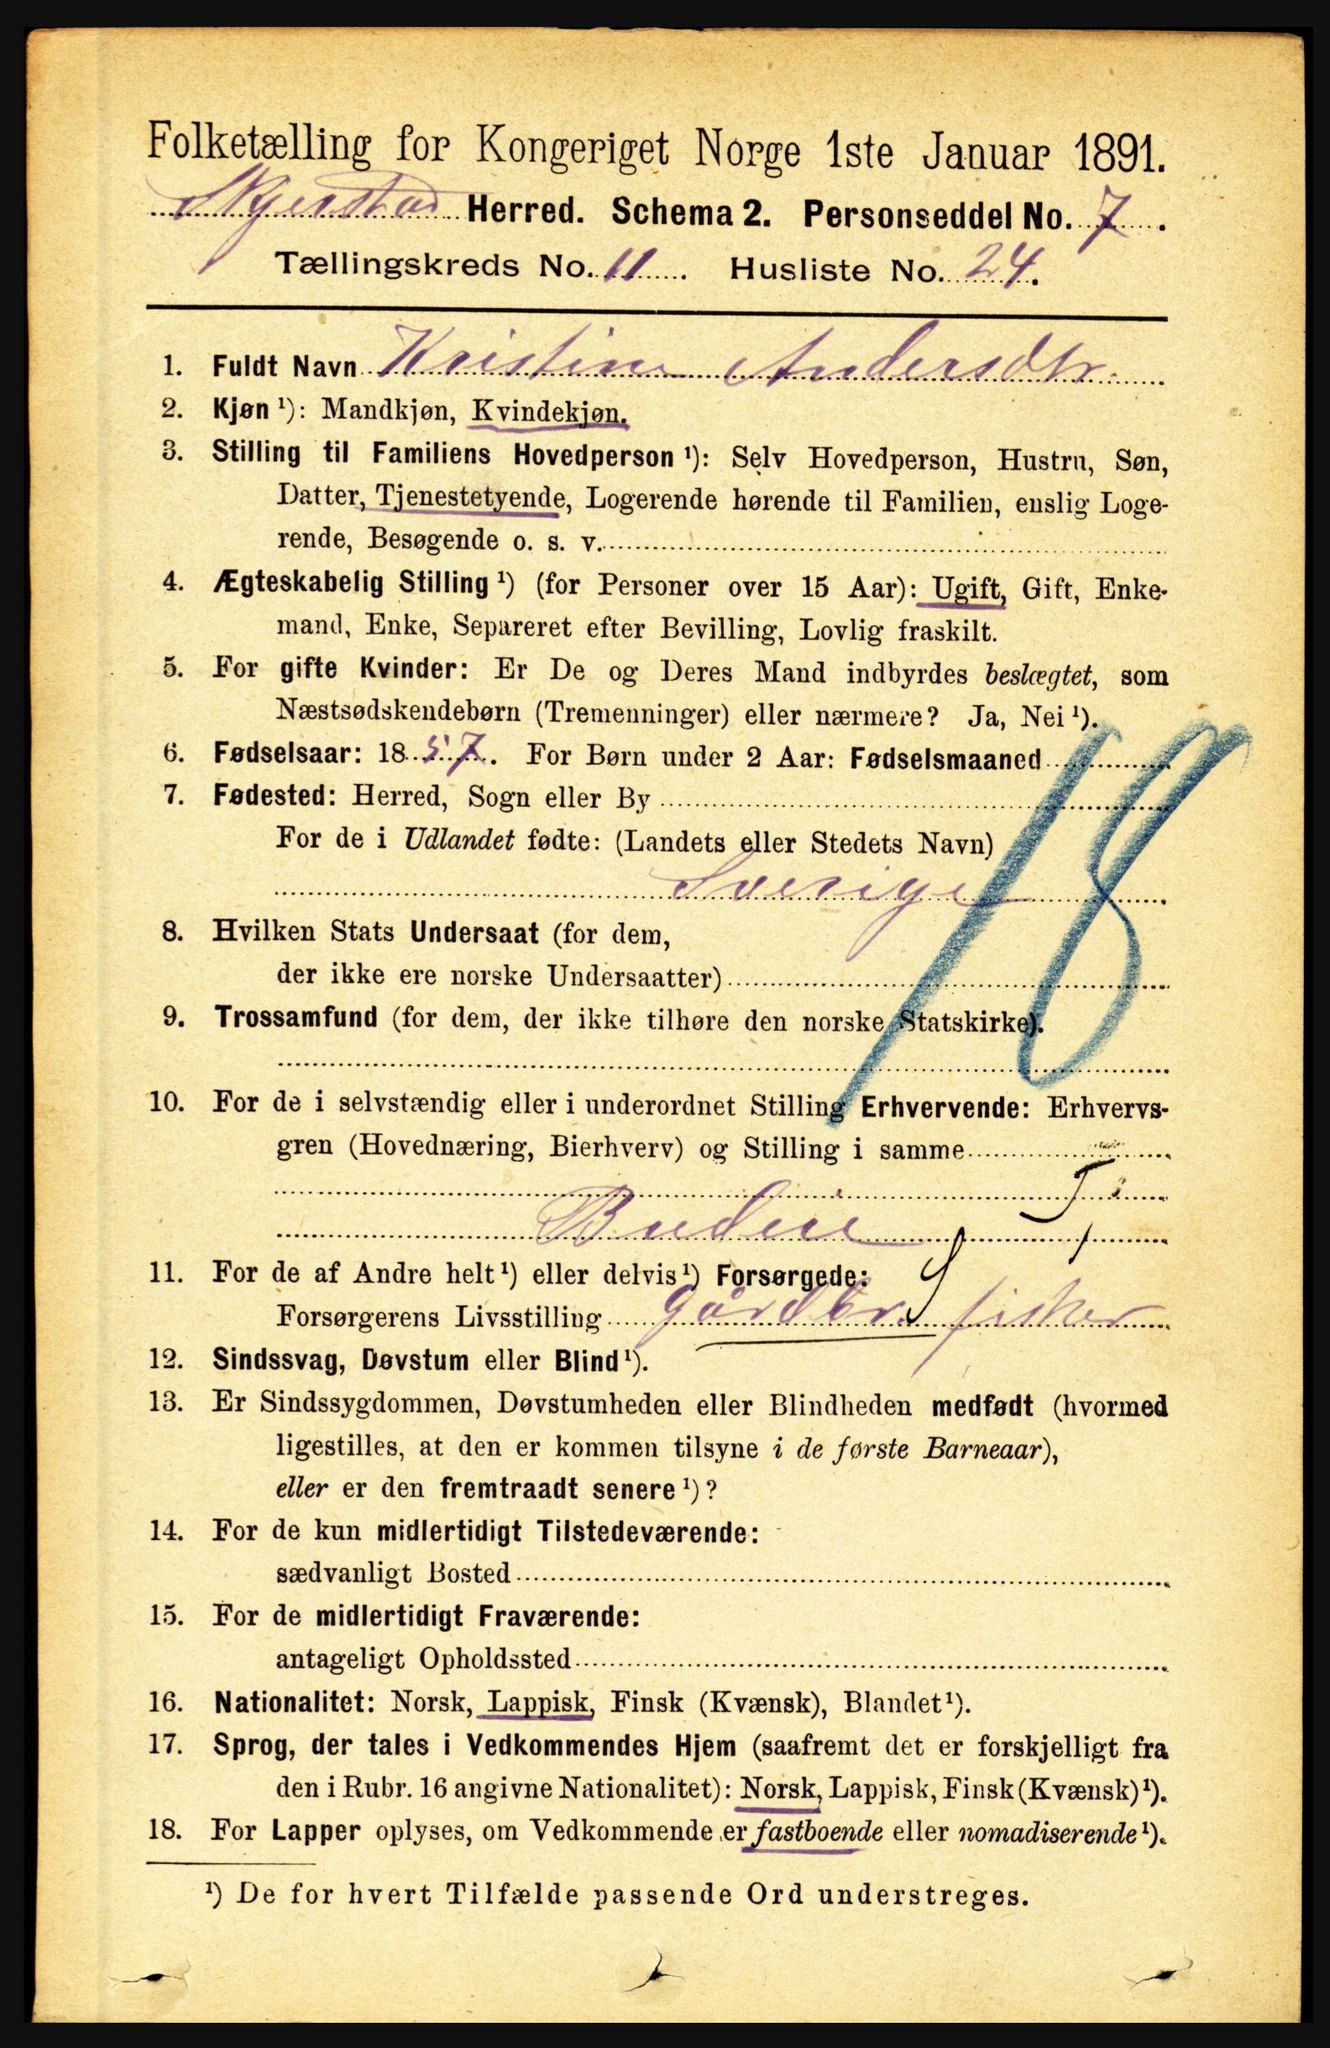 Folketælling for Kongeriget Norge 1ste Januar 1891.
Skjerstad Herred. Schema 2. Personseddel No. 7.
Tællingskreds No. 11. Husliste No. 24.
1. Fuldt Navn Kristine Andersdtr.
2. Kjøn ¹): Mandkjøn, Kvindekjøn.
3. Stilling til Familiens Hovedperson ¹): Selv Hovedperson, Hustru, Søn,
Datter, Tjenestetyende, Logerende hørende til Familien, enslig Loge-
rende, Besøgende o. s. v.
4. Ægteskabelig Stilling ¹) (for Personer over 15 Aar): Ugift, Gift, Enke-
mand, Enke, Separeret efter Bevilling, Lovlig fraskilt.
5. For gifte Kvinder: Er De og Deres Mand indbyrdes beslægtet, som
Næstsødskendebørn (Tremenninger) eller nærmere? Ja, Nei ¹).
6. Fødselsaar: 1857. For Børn under 2 Aar: Fødselsmaaned
7. Fødested: Herred, Sogn eller By
For de i Udlandet fødte: (Landets eller Stedets Navn)
Sverige
18
8. Hvilken Stats Undersaat (for dem,
der ikke ere norske Undersaatter)
9. Trossamfund (for dem, der ikke tilhøre den norske Statskirke).
10. For de i selvstændig eller i underordnet Stilling Erhvervende: Erhvervs-
gren (Hovednæring, Bierhverv) og Stilling i samme
Budeie
11. For de af Andre helt ¹) eller delvis ¹) Forsørgede:
Forsørgerens Livsstilling Gårdbr. fisker
12. Sindssvag, Døvstum eller Blind ¹).
13. Er Sindssygdommen, Døvstumheden eller Blindheden medfødt (hvormed
ligestilles, at den er kommen tilsyne i de første Barneaar),
eller er den fremtraadt senere ¹)?
14. For de kun midlertidigt Tilstedeværende:
sædvanligt Bosted
15. For de midlertidigt Fraværende:
antageligt Opholdssted
16. Nationalitet: Norsk, Lappisk, Finsk (Kvænsk), Blandet ¹).
17. Sprog, der tales i Vedkommendes Hjem (saafremt det er forskjelligt fra
den i Rubr. 16 angivne Nationalitet): Norsk, Lappisk, Finsk (Kvænsk) ¹).
18. For Lapper oplyses, om Vedkommende er fastboende eller nomadiserende ¹).
¹) De for hvert Tilfælde passende Ord understreges.